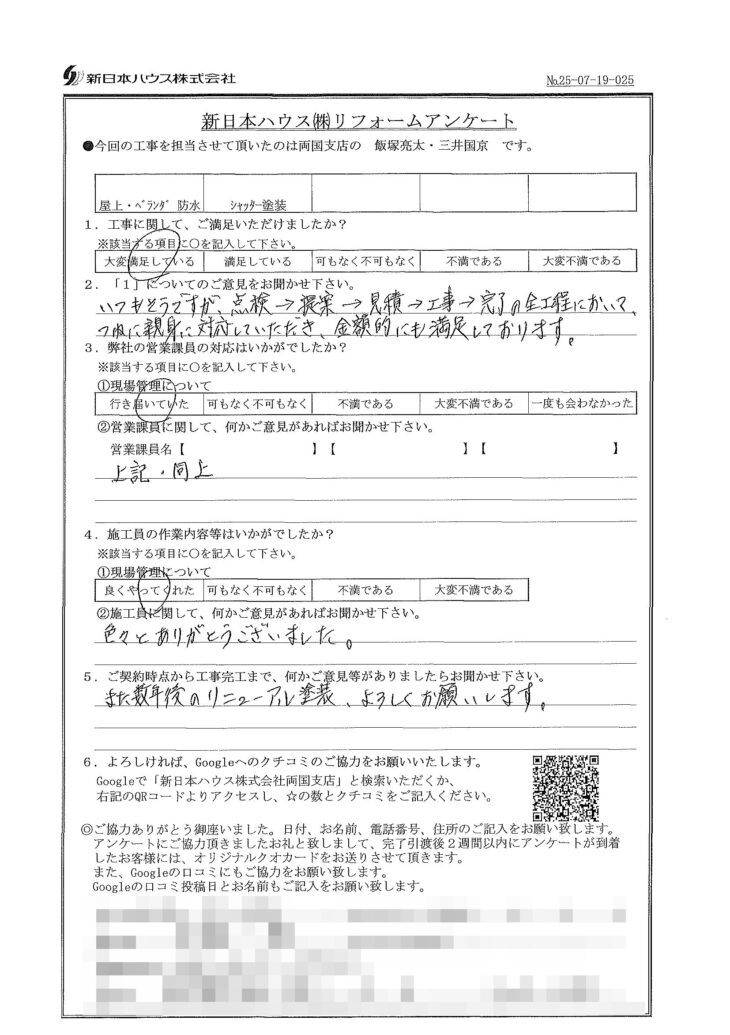 新日本ハウス株式会社
№25-07-19-025
新日本ハウス㈱リフォームアンケート
●今回の工事を担当させて頂いたのは両国支店の 飯塚亮太・三井国京 です。
屋上・ﾍﾞﾗﾝﾀﾞ 防水 ｼｬｯﾀｰ塗装
１．工事に関して、ご満足いただけましたか？
※該当する項目に○を記入して下さい。
大変満足している 満足している 可もなく不可もなく 不満である 大変不満である
２．「１」についてのご意見をお聞かせ下さい。
いつもそうですが、点検→提案→見積→工事→完了の全工程において、
つねに親身に対応していただき、金額的にも満足しております。
３．弊社の営業課員の対応はいかがでしたか？
※該当する項目に○を記入して下さい。
①現場管理について
行き届いていた 可もなく不可もなく 不満である 大変不満である 一度も会わなかった
②営業課員に関して、何かご意見があればお聞かせ下さい。
営業課員名【 】【 】【 】
上記・同上
４．施工員の作業内容等はいかがでしたか？
※該当する項目に○を記入して下さい。
①現場管理について
良くやってくれた 可もなく不可もなく 不満である 大変不満である
②施工員に関して、何かご意見があればお聞かせ下さい。
色々とありがとうございました。
５．ご契約時点から工事完工まで、何かご意見等がありましたらお聞かせ下さい。
また数年後のリニューアル塗装、よろしくお願いします。
６．よろしければ、Googleへのクチコミのご協力をお願いいたします。
Googleで「新日本ハウス株式会社両国支店」と検索いただくか、
右記のQRコードよりアクセスし、☆の数とクチコミをご記入ください。
◎ご協力ありがとう御座いました。日付、お名前、電話番号、住所のご記入をお願い致します。
アンケートにご協力頂きましたお礼と致しまして、完了引渡後２週間以内にアンケートが到着
したお客様には、オリジナルクオカードをお送りさせて頂きます。
また、Googleの口コミにもご協力をお願い致します。
Googleの口コミ投稿日とお名前もご記入をお願い致します。